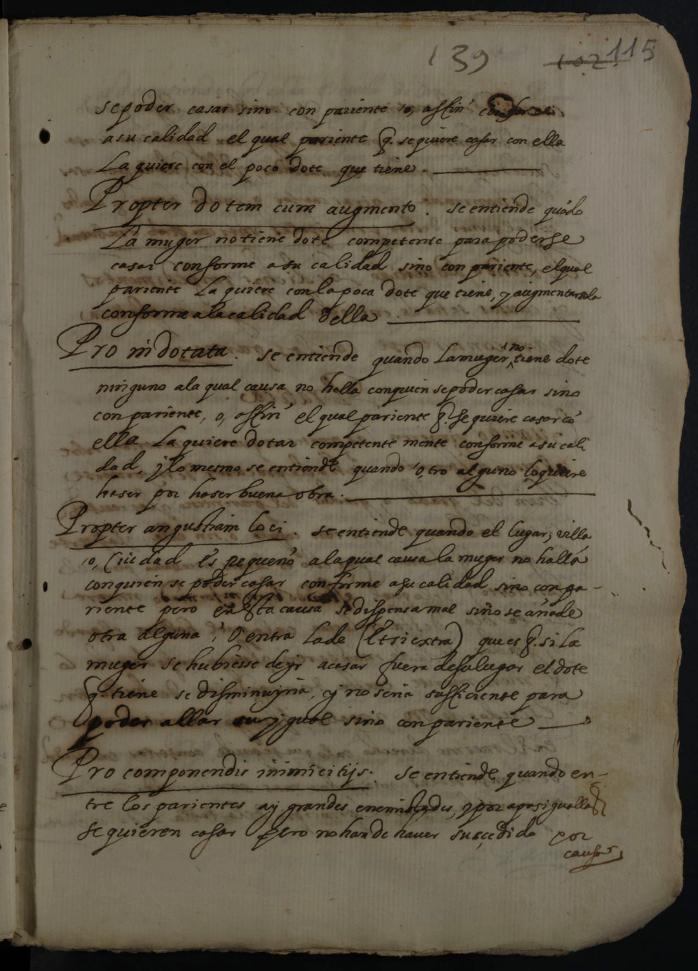 139 102 115
se poder casar sino con pariente, o, affin
a su calidad el qual pariente q. se quiere casar con ella
La quiere con el poco dote que tiene.
Propter dotem cum augmento. se entiende quãdo
La muger no tiene dote competente para poderse
casar conforme a su calidad sino con pariente, el qual
pariente La quiere con la poca dote que tiene, y augmentarsela
conforme a la calidad della
Pro indotata. se entiende quando La muger no tiene dote
ninguno a la qual causa no halla con quien se poder casar sino
con pariente, o, affin el qual pariente q. se quiere casar cõ
ella La quiere dotar competente mente conforme a su cali
dad, y lo mesmo se entiende quando otro alguno lo quiere
haser por haser buena obra.
Propter angustiam loci. se entiende quando el lugar, villa
o, Ciudad es pequeño a la qual causa la muger no halla
con quien se poder casar conforme a su calidad sino con pa-
riente pero esta causa se dispensa mal sino se añade
otra alguna, o entra la de (Et si extra) que es q. si la
muger se hubiesse de yr a casar fuera de su lugar el dote
q. tiene se disminuyria, y no seria sufficiente para
poder allar su ygual sino con pariente
Pro componendis inimicitijs. se entiende quando en-
tre los parientes ay grandes enemistades, y por apasiguallas
se quieren casar pero no han de haver suçedido por
causa